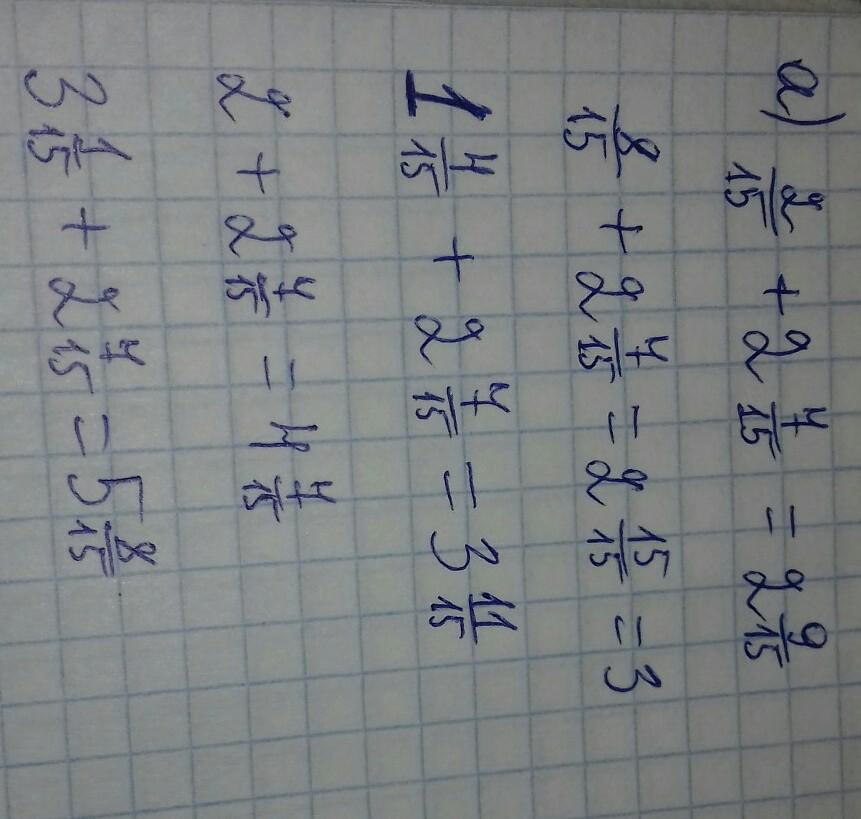 а) 2/15 + 2 7/15 = 2 9/15
8/15 + 2 7/15 = 2 15/15 = 3
1 4/15 + 2 7/15 = 3 11/15
2 + 2 7/15 = 4 7/15
3 1/15 + 2 7/15 = 5 8/15